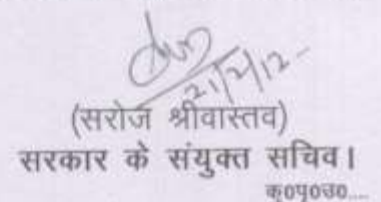 21/2/12
(सरोज श्रीवास्तव)
सरकार के संयुक्त सचिव।
कृ0पृ0उ0....